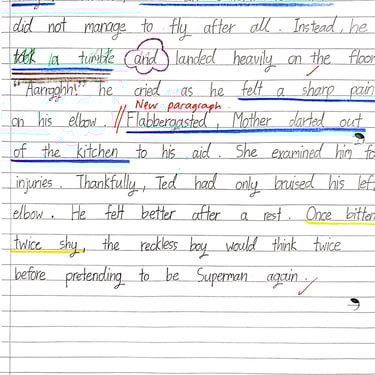 did not manage to fly after all. Instead, he
took a tumble and landed heavily on the floor
"Aarrgghh!" he cried as he felt a sharp pain
New paragraph
on his elbow. // Flabbergasted, Mother darted out
of the kitchen to his aid. She examined him fo
injuries. Thankfully, Ted had only bruised his lef
elbow. He felt better after a rest. Once bitten
twice shy, the reckless boy would think twice
before pretending to be Superman again.